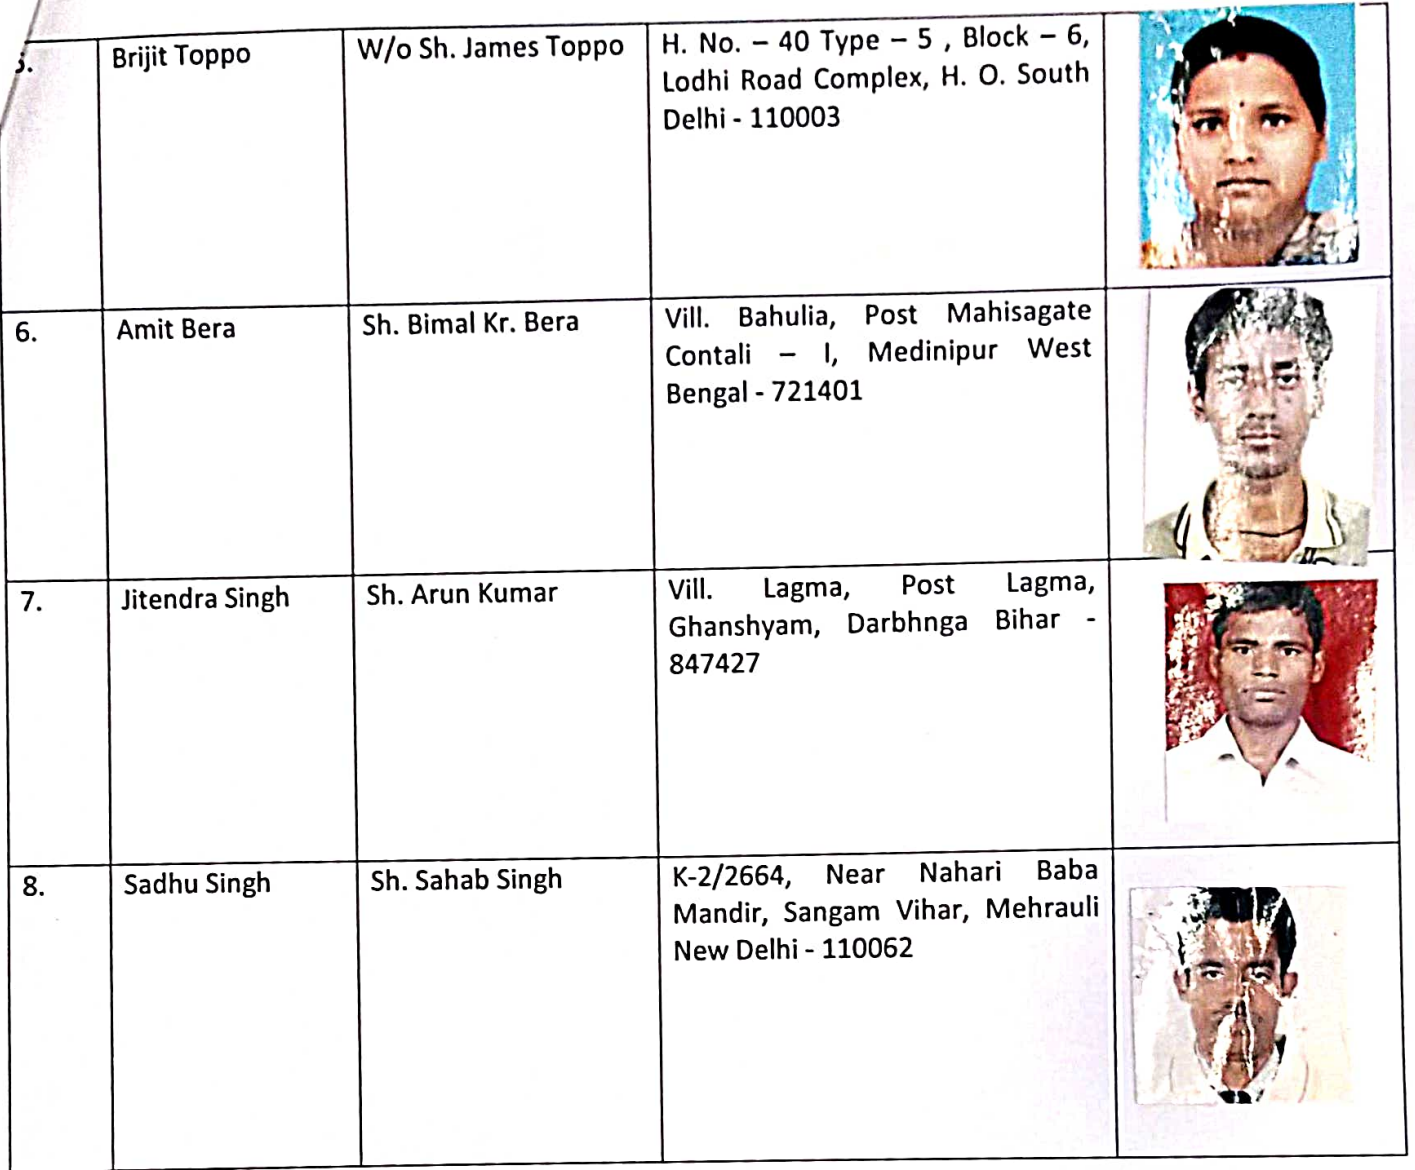 5.
Brijit Toppo
W/o Sh. James Toppo
H. No. – 40 Type – 5 , Block – 6,
Lodhi Road Complex, H. O. South
Delhi - 110003
6.
Amit Bera
Sh. Bimal Kr. Bera
Vill. Bahulia, Post Mahisagate
Contali – I, Medinipur West
Bengal - 721401
7.
Jitendra Singh
Sh. Arun Kumar
Vill. Lagma, Post Lagma,
Ghanshyam, Darbhnga Bihar -
847427
8.
Sadhu Singh
Sh. Sahab Singh
K-2/2664, Near Nahari Baba
Mandir, Sangam Vihar, Mehrauli
New Delhi - 110062